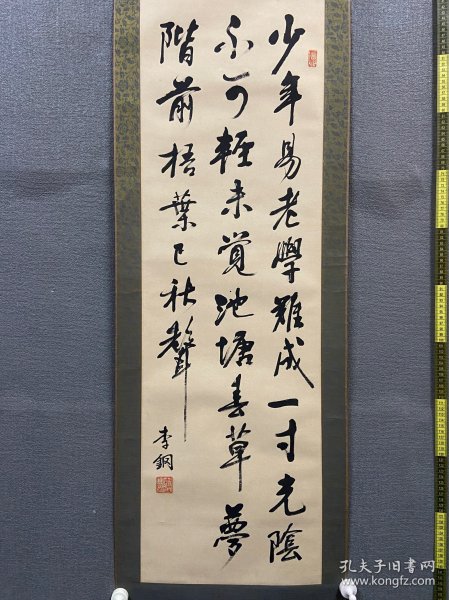 少年易老學難成一寸光陰
不可輕未覺池塘春草夢
階前梧葉已秋聲
李鋼
孔夫子旧书网
www.kongfz.com